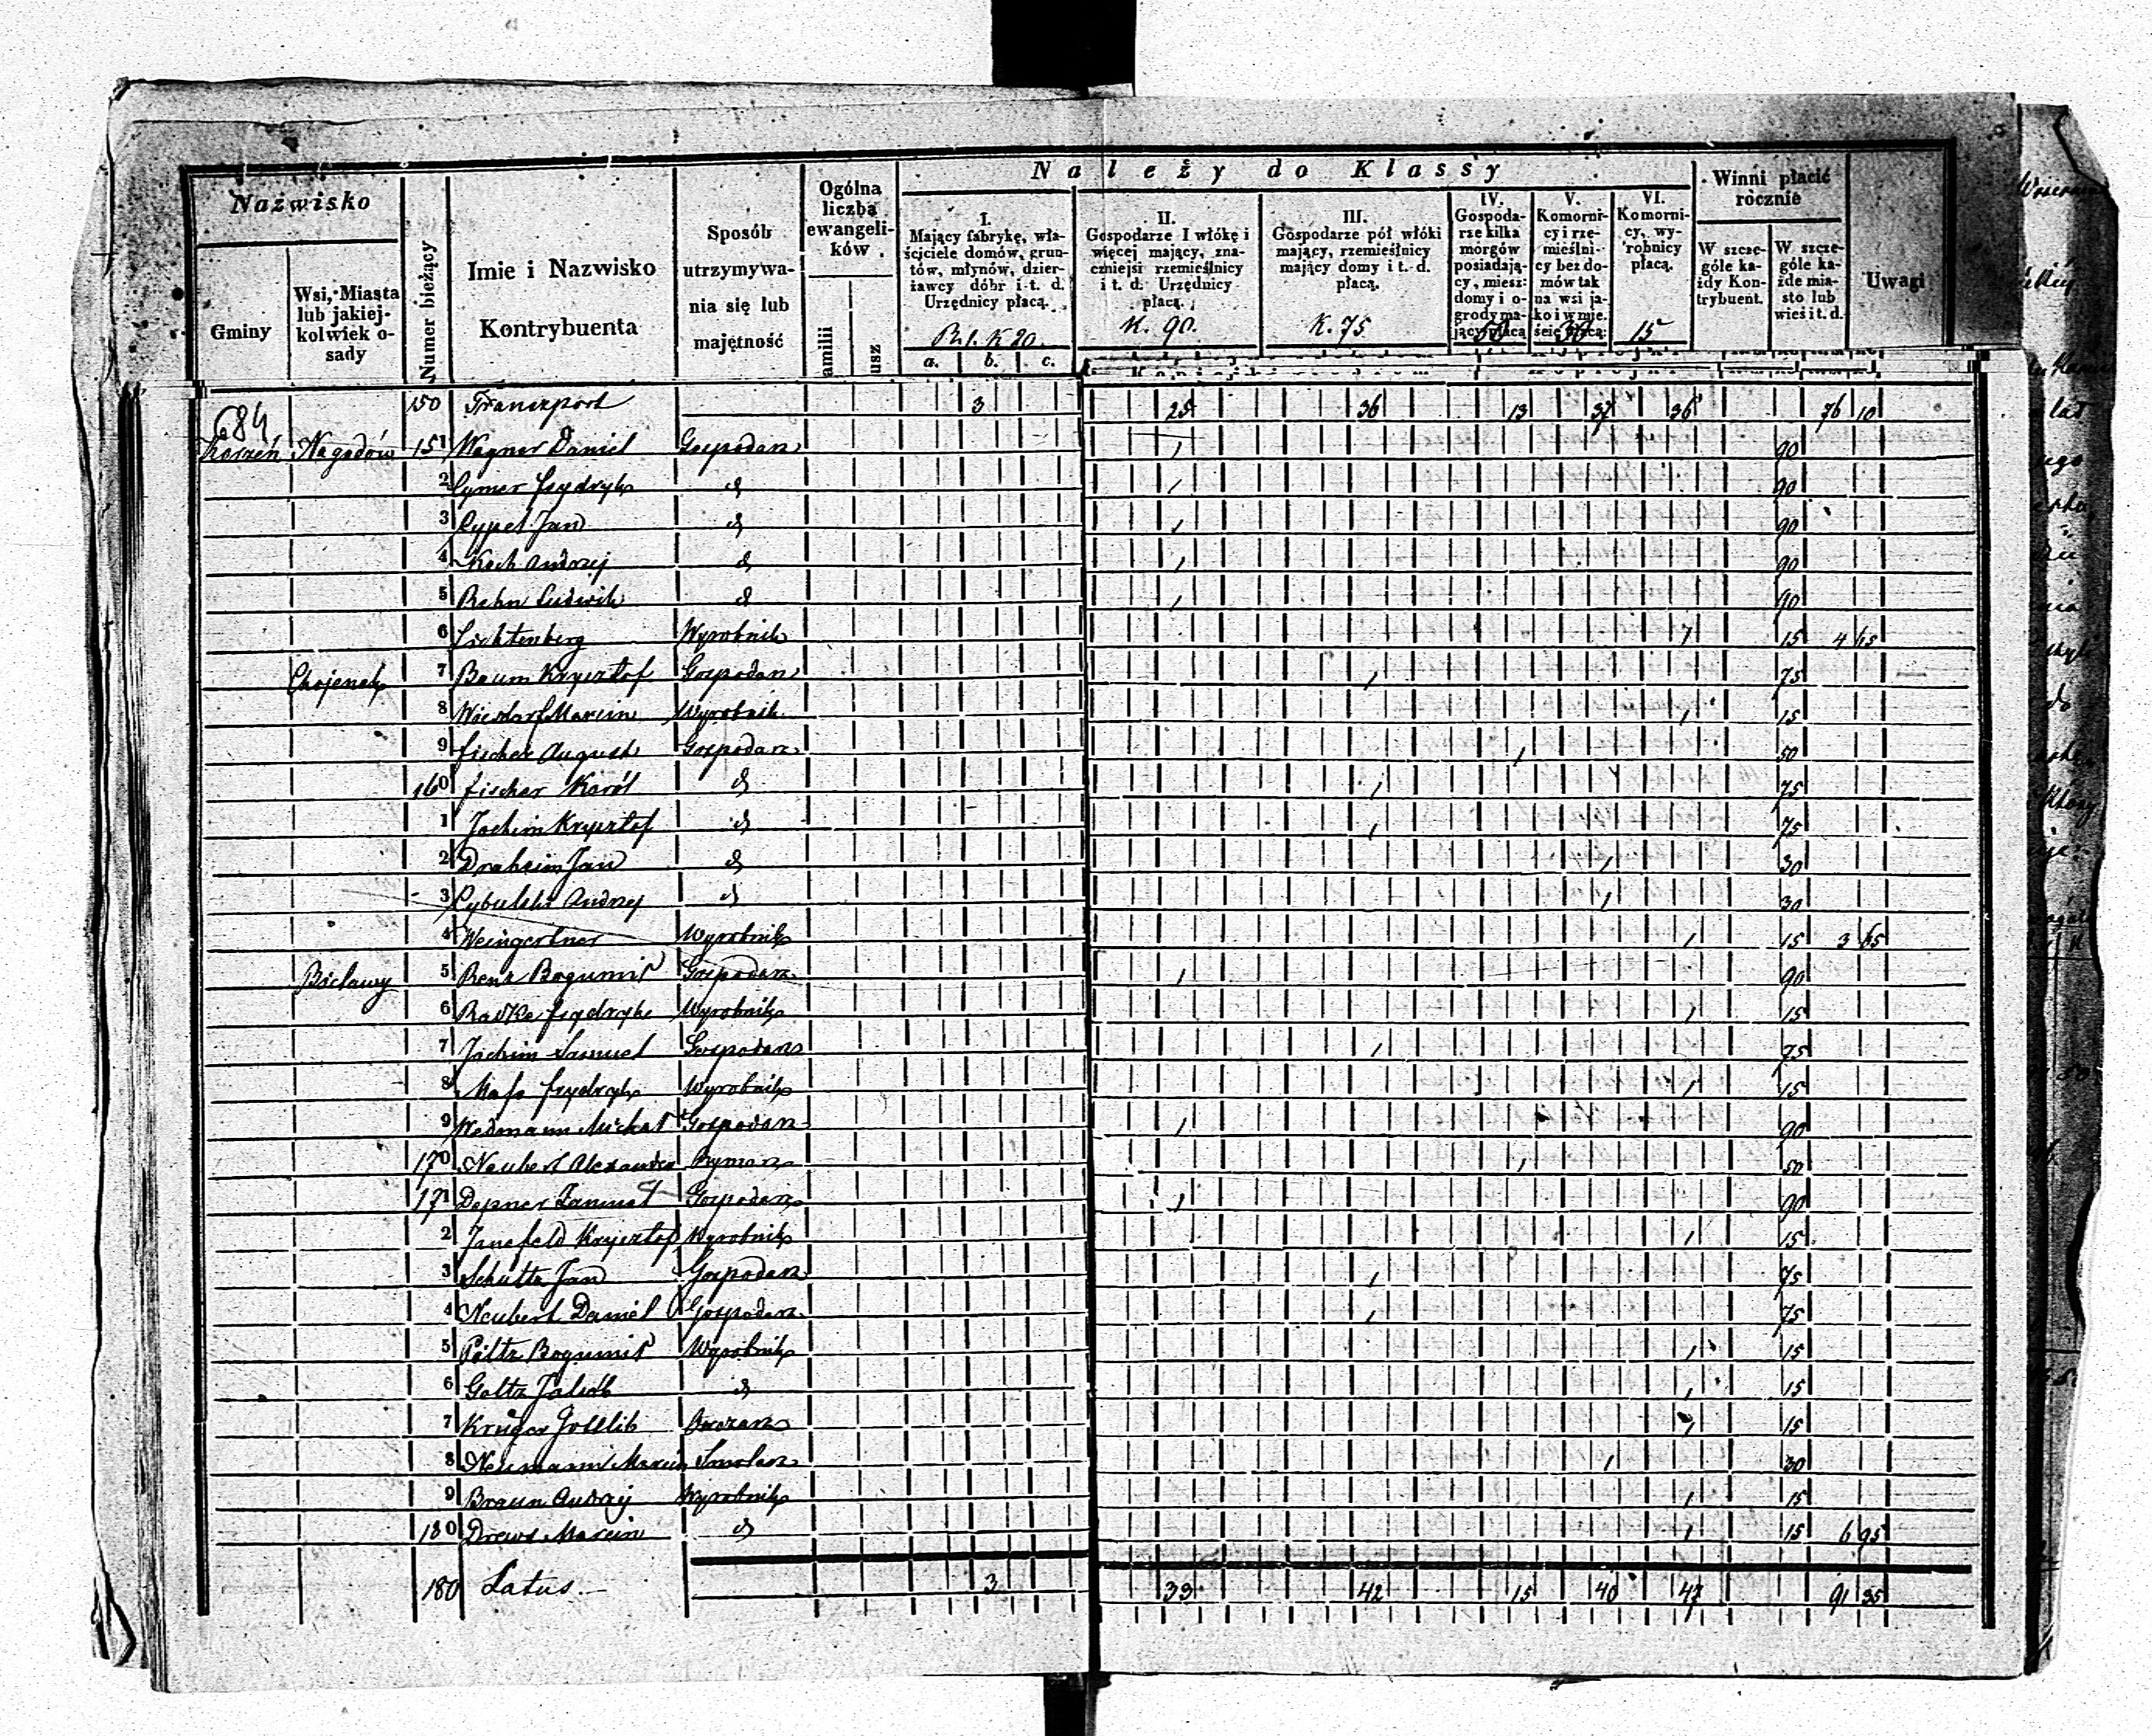 Należy do Klassy
Nazwisko
Gminy
Wsi, Miasta lub jakiej-kolwiek o-sady
Numer bieżący
Imie i Nazwisko Kontrybuenta
Sposób utrzymywa-nia się lub majętność
Ogólna liczba ewangeli-ków
amilii
usz
I. Mający fabrykę, wła-ściciele domów, grun-tów, młynów, dzier-żawcy dóbr i t. d. Urzędnicy płacą.
R. 1. K 20.
a. b. c.
II. Gospodarze I włókę i więcej mający, zna-czniejsi rzemieślnicy i t. d. Urzędnicy płacą.
K. 90.
III. Gospodarze pół włóki mający, rzemieślnicy mający domy i t. d. płacą.
K. 75
IV. Gospoda-rze kilka morgów posiadają-cy, miesz: domy i o-grody ma-jący płacą
50
V. Komorni-cy i rze-mieślni-cy bez do-mów tak na wsi ja-ko i w mie-ście płacą:
30
VI. Komorni-cy, wy-robnicy płacą.
15
Winni płacić rocznie
W szcze-góle ka-żdy Kon-trybuent.
W szcze-góle ka-żde mia-sto lub wieś i t. d.
Uwagi
150 Transport 3 36 13 37 36 76 10
684
Korzeń 151 Wagner Daniel Gospodarz 1 90
2 Cymer Frydryk d 1 90
3 Cypel Jan d 1 90
4 Koch Andrzej d 1 90
5 Rehn Ludwik d 1 90
6 Lichtenberg Wyrobnik 1 15 4 65
7 Baum Krysztof Gospodarz 1 75
8 Marcin Wyrobnik 1 15
9 Fischer August Gospodarz 1 50
160 Fischer Karól d 1 75
1 Jochim Krysztof d 1 75
2 Draheim Jan d 1 30
3 Cybulski Andrzej d 1 30
4 Weingertner Wyrobnik 1 15 3 65
Bielawy 5 Renz Bogumił Gospodarz 1 90
6 Radke Frydryk Wyrobnik 1 15
7 Jachim Samuel Gospodarz 1 75
8 Frydryk Wyrobnik 1 15
9 Wedmann Michał Gospodarz 1 90
170 Neubert Alexander Rymarz 1 50
171 Depner Gospodarz 1 90
2 Janefeld Krysztof Wyrobnik 1 15
3 Schultz Jan Gospodarz 1 75
4 Neubert Daniel Gospodarz 1 75
5 Bogumił Wyrobnik 1 15
6 Goltz Jakób d 1 15
7 Krüger Gottlib 1 15
8 Neumann Marcin Smolarz 1 30
9 Braun Andrzej Wyrobnik 1 15
180 Drews Marcin d 1 15 6 95
180 Latus 3 33 42 15 40 47 91 35